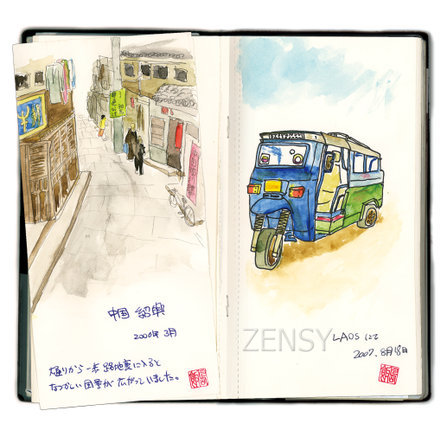 中国 紹興
2006年 3月
大通りから一歩 路地裏に入ると
なつかしい風景が 広がっていました。
ZENSY
LAOS にて
2007. 8月18日